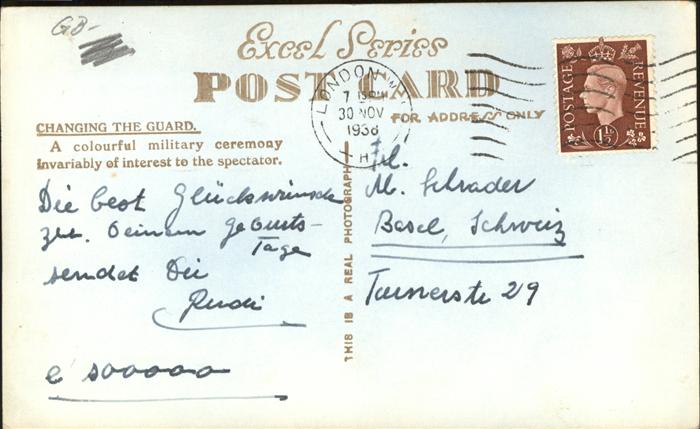 GB-
Excel Series
POST CARD
LONDON W.1
7 15 PM
30 NOV
1938
H
FOR ADDRESS ONLY
POSTAGE
REVENUE
1½
CHANGING THE GUARD.
A colourful military ceremony
invariably of interest to the spectator.
THIS IS A REAL PHOTOGRAPH
Die best Glückwünsche
zu Deinem Geburts-
Tage
sendet Die
Rudi
e' sooooo
Fr.
M. Schrader
Basel, Schweiz
Turnerstr 29